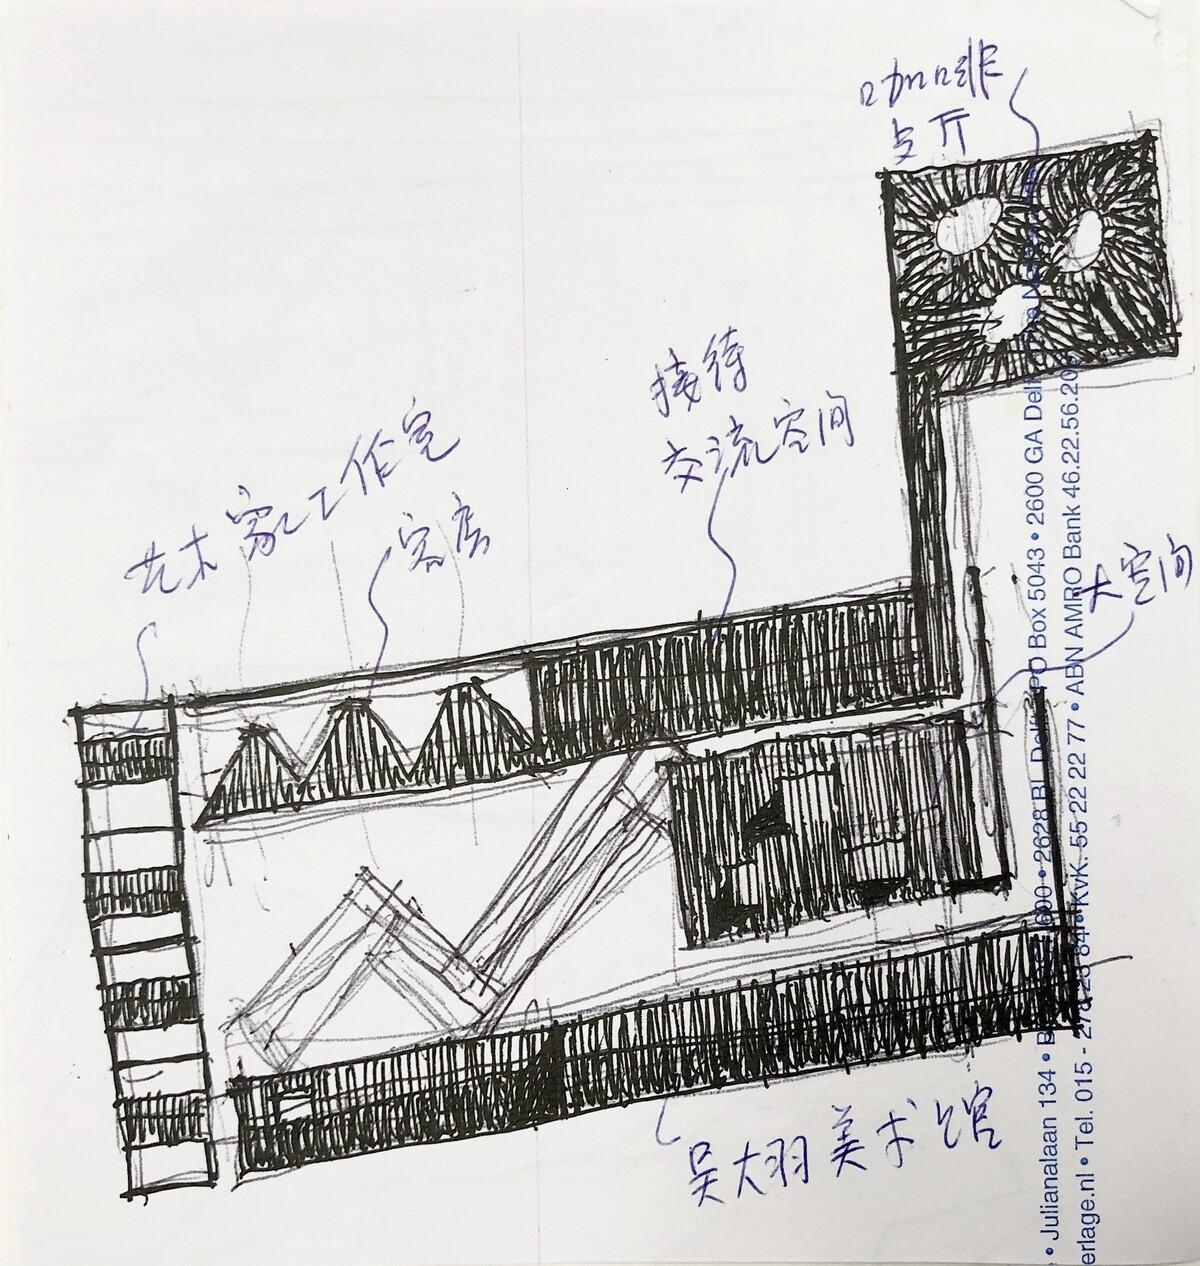 咖啡
餐厅
接待
交流空间
艺术家工作室
客房
大空间
吴大羽美术馆
• Julianalaan 134 • B 600 • 2628 BL Delft PO Box 5043 • 2600 GA Delft The Ne
erlage.nl • Tel. 015 - 278 25 84 • KvK. 55 22 22 77 • ABN AMRO Bank 46.22.56.20